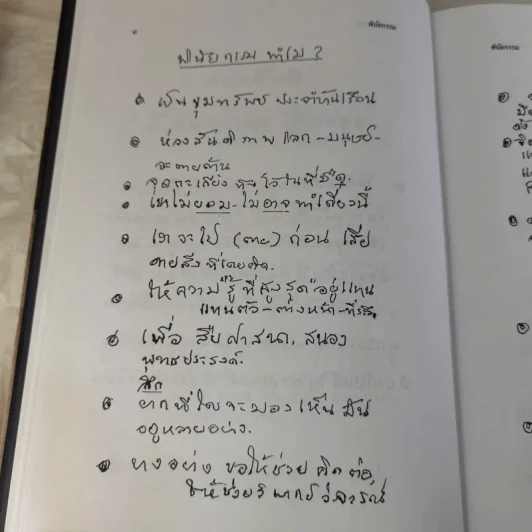 ๔
พินัยกรรม
พินัยกรรม ทำไม ?
เป็น ขุมทรัพย์ ประจำบ้านเรือน
ห่วงสันติภาพ โลก-มนุษย์-
จะตายด้าน
จุดตะเกียง ทิ้งไว้ในที่มืด
เราไม่ยอม-ไม่อาจทำเดี๋ยวนี้
เราจะไป (ตาย) ก่อน เสีย
ดายสิ่งที่เคยคิด.
ให้ความ "รู้ ที่สูงสุด" อยู่แทน
แทนตัว-ต่างหน้า-ที่ระลึก
เพื่อ สืบศาสนา, สนอง
พุทธประสงค์.
ลึก
ยากที่ใครจะมองเห็น มัน
อยู่หลายอย่าง.
บางอย่าง ขอให้ช่วย คิดต่อ,
ให้ช่วยวิพากษ์วิจารณ์
พินัยกรรม